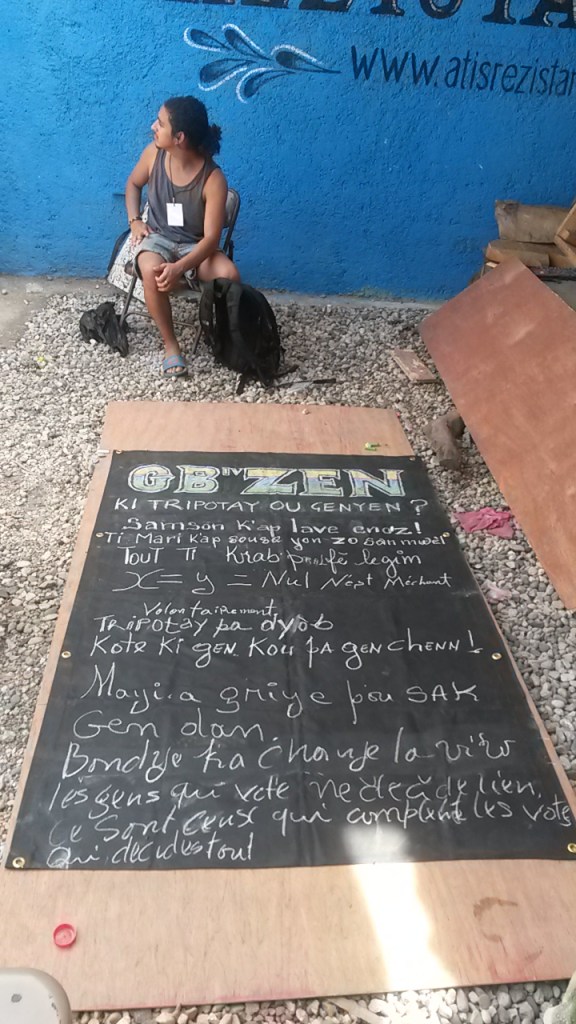 www.atisrezistan
GB ZEN
KI TRIPOTAY OU GENYEN ?
Samson k'ap lave
Ti Mari k'ap souse yon zo san
TOUT TI Krab legim
X = y = Nul N'est Méchant
Volontairement
TRIPOTAY pa dyòb
Kote ki gen kou pa gen chenn !
Mayi a griye pou SAK
Gen dan.
Bondye ka change la
les gens qui vote ne décide rien.
Ce sont ceux qui compte les vote
qui décides tout